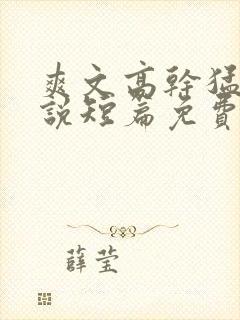 爽文高幹猛
說短篇免費
薛莹